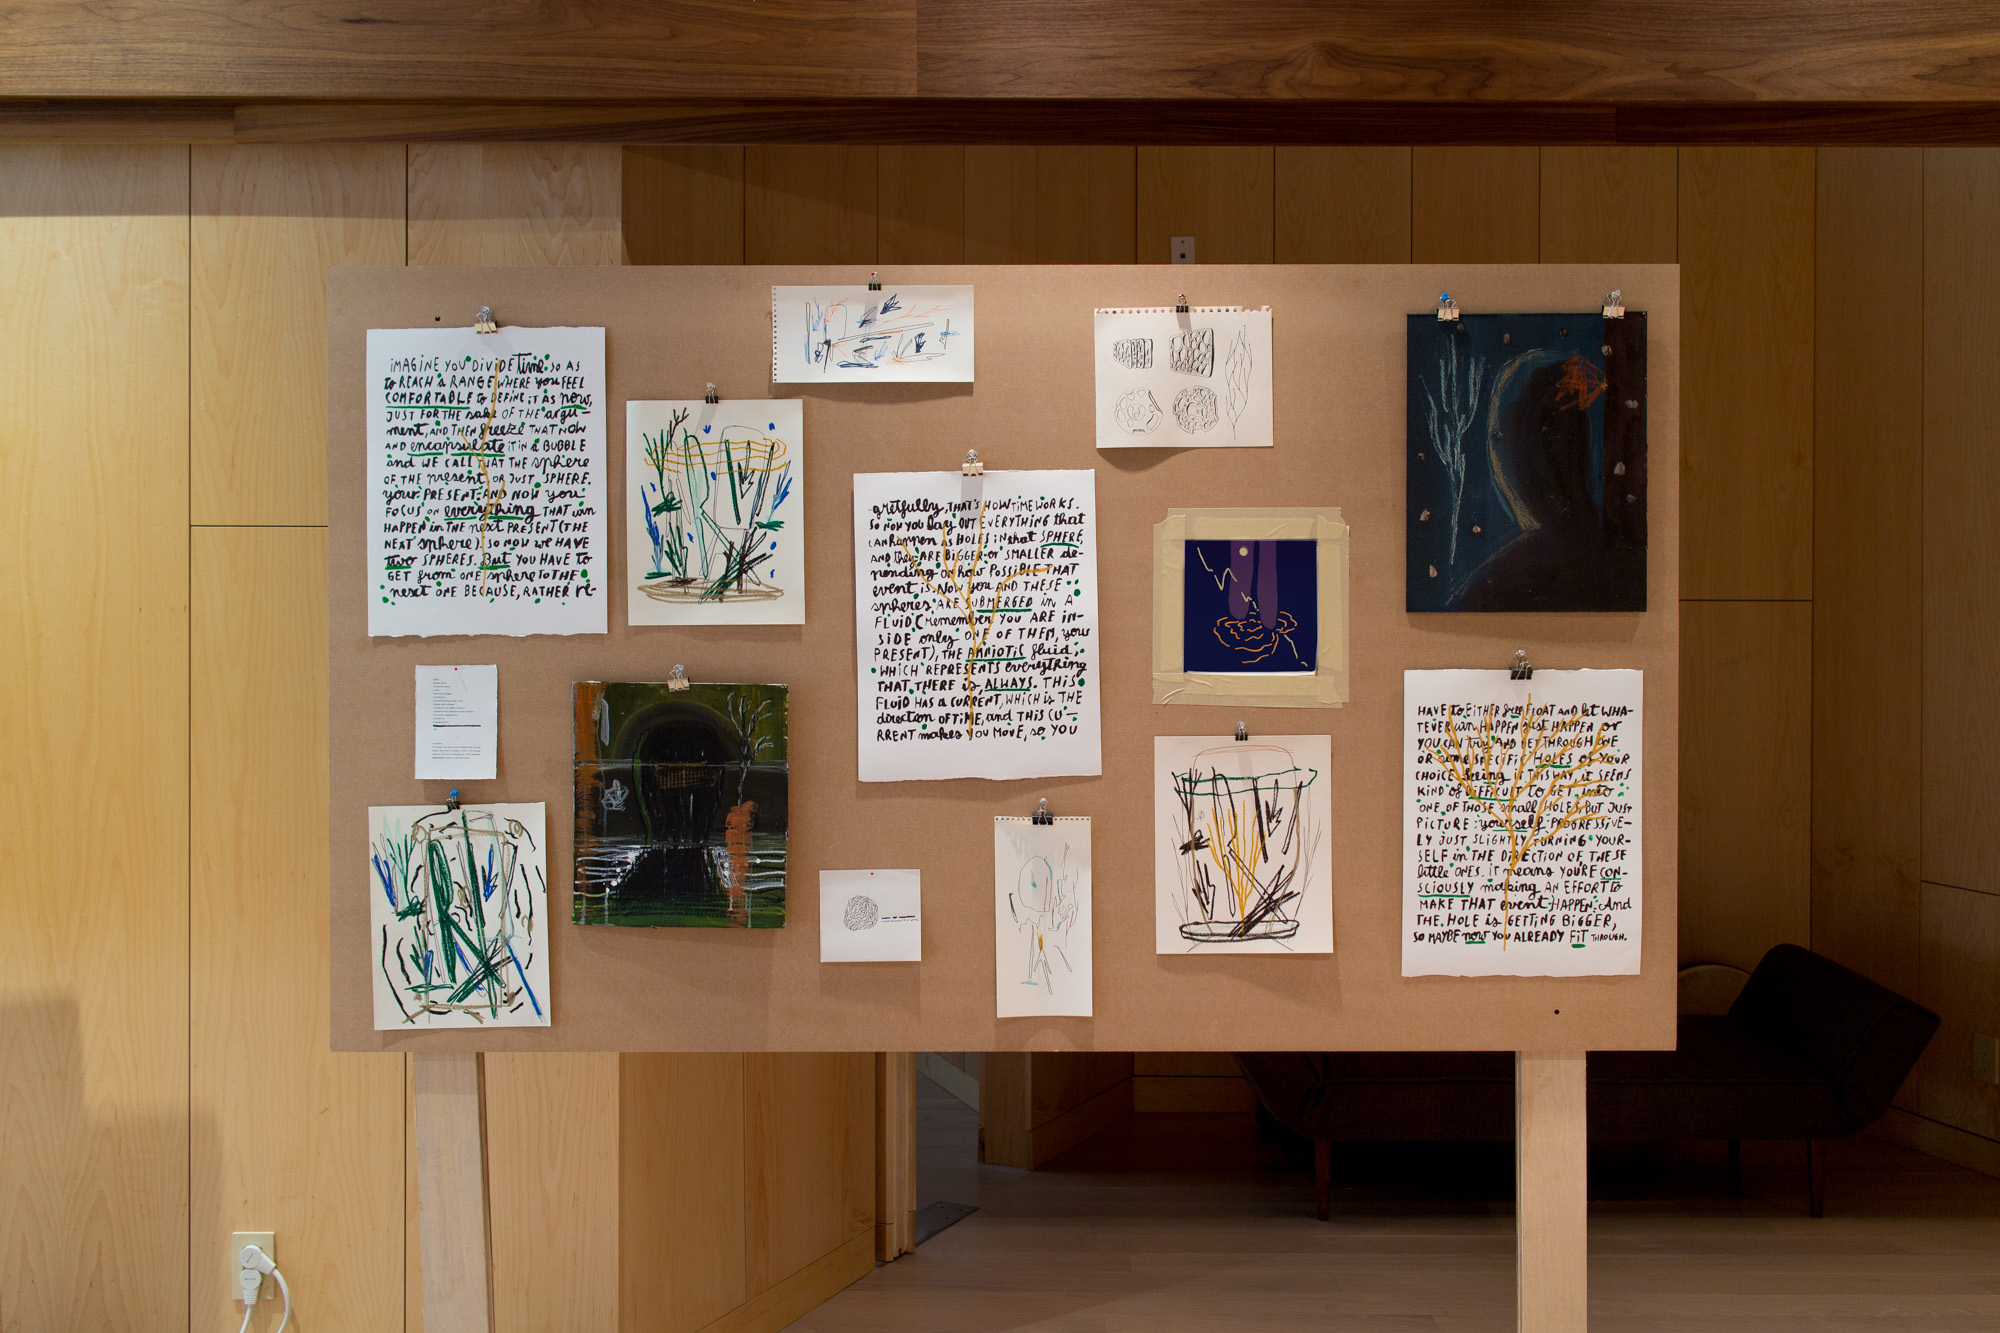 iMAGINE YOU DiViDE time so AS
to REACH A RANGE WHERE you FEEL
COMFORTABLE to DEFINE iT AS now,
JUST FOR THE sake OF THE argu-
ment, AND THEN freeze THAT NOW
AND encapsulate iT iN A BUBBLE
and WE CALL THAT THE sphere
OF THE present, OR JUST SPHERE.
your PRESENT. AND NOW you
FOCUS on everything THAT can
HAPPEN in THE next PRESENT (THE
NEXT sphere). SO NOW WE HAVE
two SPHERES. But YOU HAVE to
GET from ONE sphere to THE
next ONE BECAUSE, RATHER re-
gretfully, THAT'S HOW TIME WORKS.
SO NOW YOU lay OUT EVERYTHING that
CAN happen AS HOLES iN that SPHERE,
AND they ARE BiGGER or SMALLER de-
pending on how POSSIBLE THAT
event is. NOW you AND THESE
spheres ARE SUBMERGED in A
FLUiD (remember, YOU ARE iN-
SiDE only ONE OF THEM, your
PRESENT), THE AMNiOTiC fluid,
WHICH REPRESENTS everything
THAT THERE is, ALWAYS. THiS
FLUiD HAS A CURRENT, WHICH is THE
direction OF TiME, and THiS CU-
RRENT makes YOU MOVE, so YOU
HAVE to EiTHER free FLOAT AND let WHA-
TEVER can HAPPEN just HAPPEN or
YOU CAN try AND GET THROUGH ONE
OR some SPECiFiC HOLES OF YOUR
CHOICE. Seeing iT THiS WAY, iT SEEMS
KiND OF DiFFiCULT TO GET into
ONE OF THOSE small HOLES, BUT JUST
PiCTURE yourself PROGRESSiVE-
LY JUST SLiGHTLY TURNiNG YOUR-
SELF in THE DiRECTiON OF THESE
little ONES. iT means YOU'RE CON-
SCiOUSLY making AN EFFORT to
MAKE THAT event HAPPEN. And
THE HOLE is GETTiNG BiGGER,
SO MAYBE now YOU ALREADY FiT THROUGH.